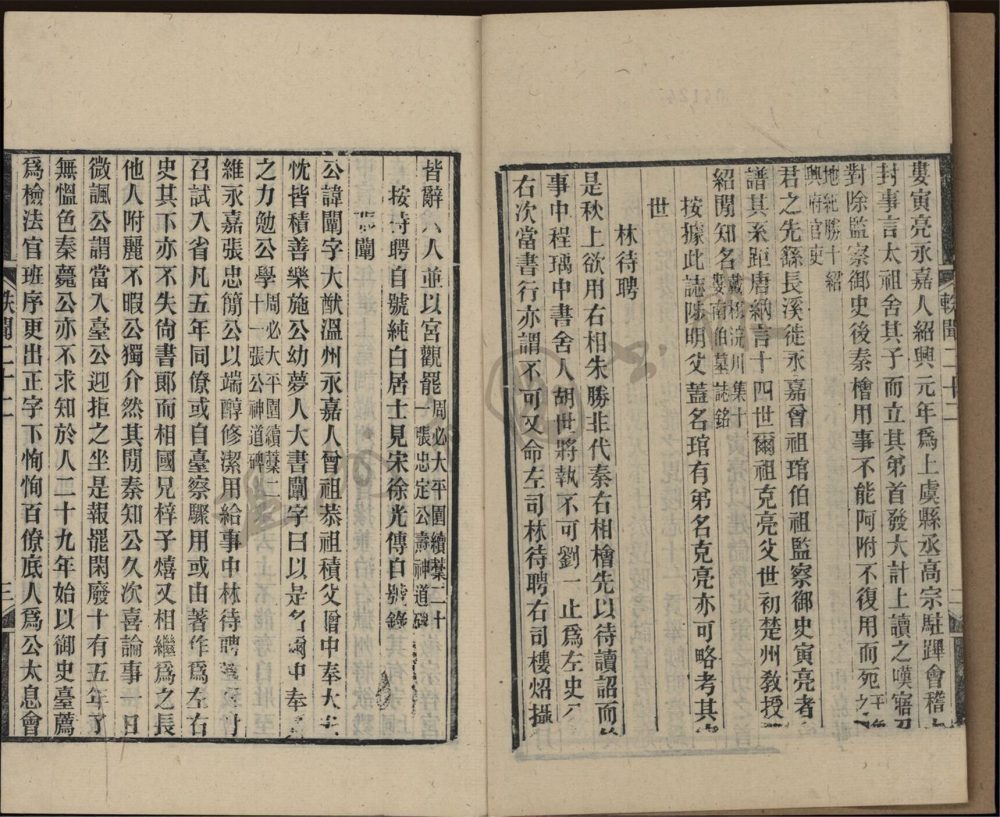 婁寅亮永嘉人紹興元年爲上虞縣丞高宗駐蹕會稽
封事言太祖舍其子而立其弟首發大計上讀之嘆寤召
對除監察御史後秦檜用事不能阿附不復用而死
地紀勝十紹
興府官吏
君之先繇長溪徙永嘉曾祖琯伯祖監察御史寅亮者
譜其系距唐納言十四世爾祖克亮父世初楚州敎授
紹閒知名戴栩浣川集十
婁南伯墓誌銘
按據此誌陟明父蓋名琯有弟名克亮亦可略考其
世
林待聘
是秋上欲用右相朱勝非代秦右相檜先以待讀詔而
事中程瑀中書舍人胡世將執不可劉一止爲左史
右次當書行亦謂不可又命左司林待聘右司樓炤攝
軼聞二十二
皆辭 人並以宮觀罷周必大平園續藁二十
一張忠定公燾神道碑
按待聘自號純白居士見宋徐光傳白號錄
張闡
公諱闡字大猷溫州永嘉人曾祖恭祖積父 贈中奉大
忱皆積善樂施公幼夢人大書闡字曰以是名 中奉
之力勉公學周必大平園續藁二
十一張公神道碑
維永嘉張忠簡公以端醇修潔用給事中林待聘
召試入省凡五年同僚或自臺察驟用或由著作爲左右
史其下亦不失尙書郞而相國兄梓子熺又相繼爲之長
他人附麗不暇公獨介然其閒秦知公久次喜論事一日
微諷公謂當入臺公迎拒之坐是報罷閑廢十有五年了
無慍色秦薨公亦不求知於人二十九年始以御史臺薦
爲檢法官班序更出正字下恂恂百僚底人爲公太息會
軼聞二十二
三